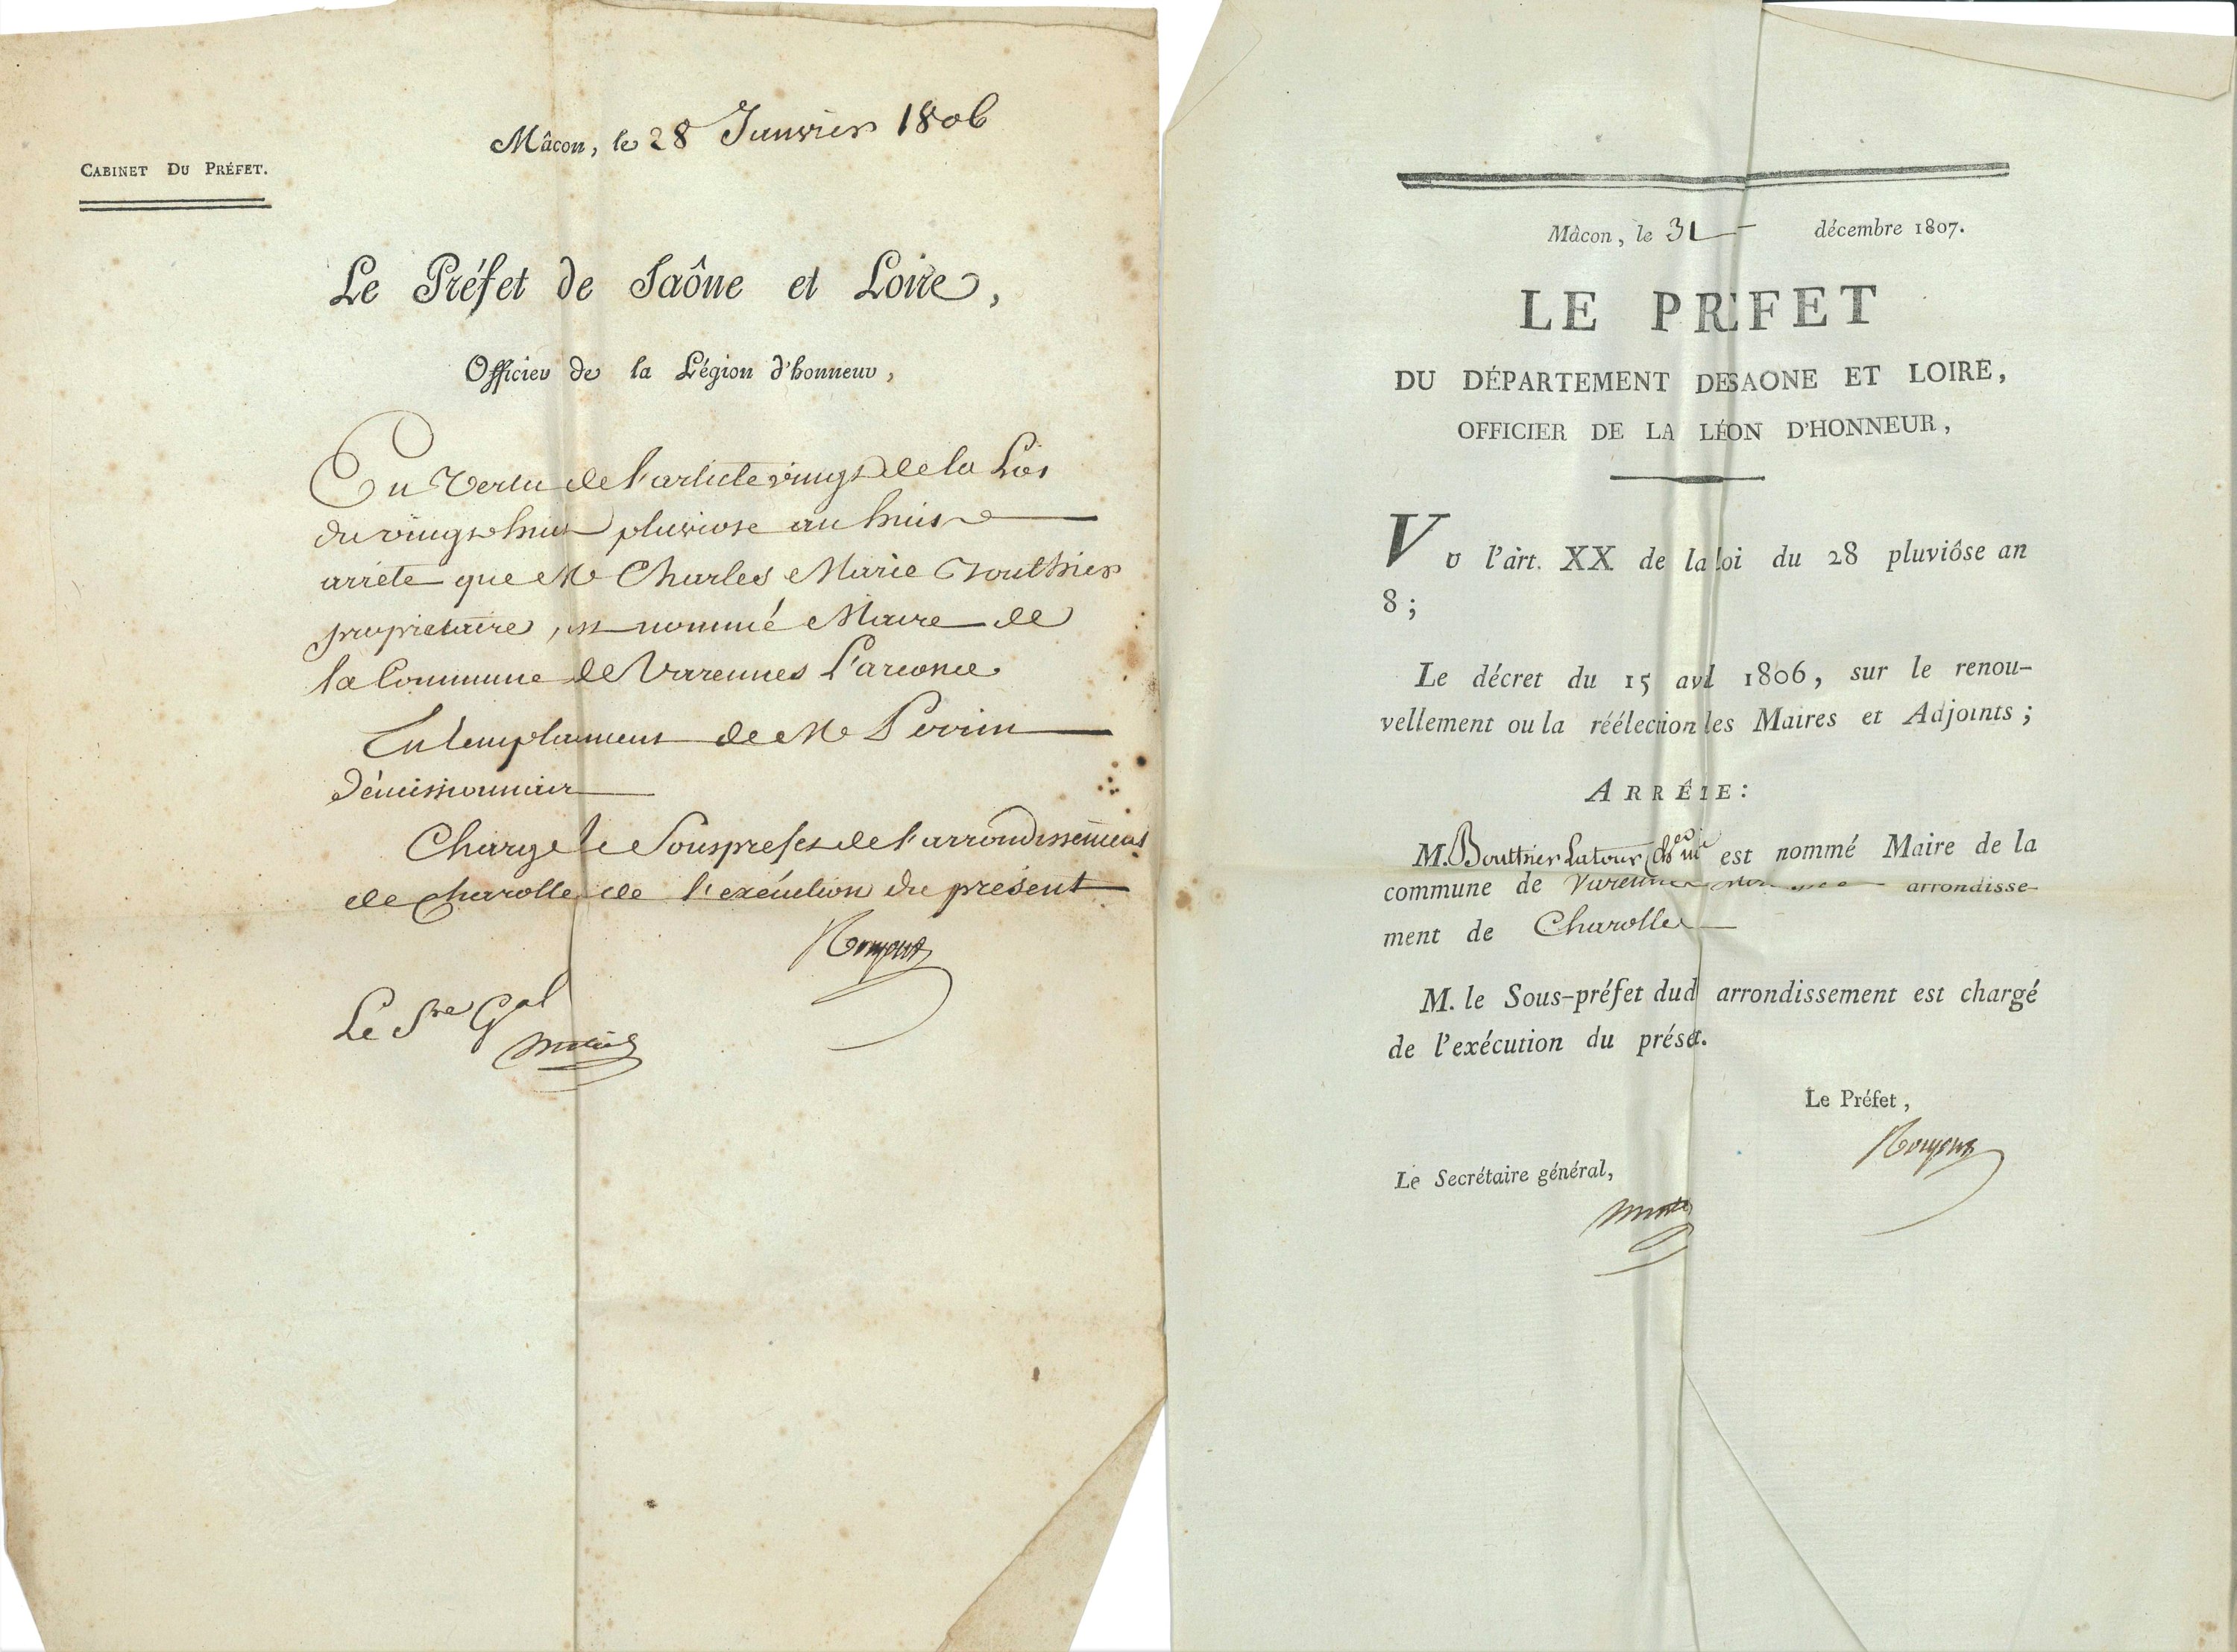 Mâcon, le 28 Janvier 1806
CABINET DU PRÉFET.
Le Préfet de Saône et Loire,
Officier de la Légion d'honneur,
En Vertu de l'article vingt de la Loi
du vingt huit pluviose an huit
arrete que Mr Charles Marie Bouthier
proprietaire, est nommé Maire de
la Commune de Varennes L'arconce
En remplacement de Mr Perrin
Démissionnaire
Charge le Sousprefet de l'arrondissement
de Charolle de l'exécution du présent
Le Sre Gal
Mâcon, le 31 décembre 1807.
LE PRFET
DU DÉPARTEMENT DESAONE ET LOIRE,
OFFICIER DE LA LÉON D'HONNEUR,
VU l'art. XX de la loi du 28 pluviôse an
8;
Le décret du 15 avl 1806, sur le renou-
vellement ou la réélection les Maires et Adjoints;
ARRÊTE:
M. Bouthier Latour est nommé Maire de la
commune de Varennes arrondisse-
ment de Charolles
M. le Sous-préfet dud arrondissement est chargé
de l'exécution du préset.
Le Préfet,
Le Secrétaire général,